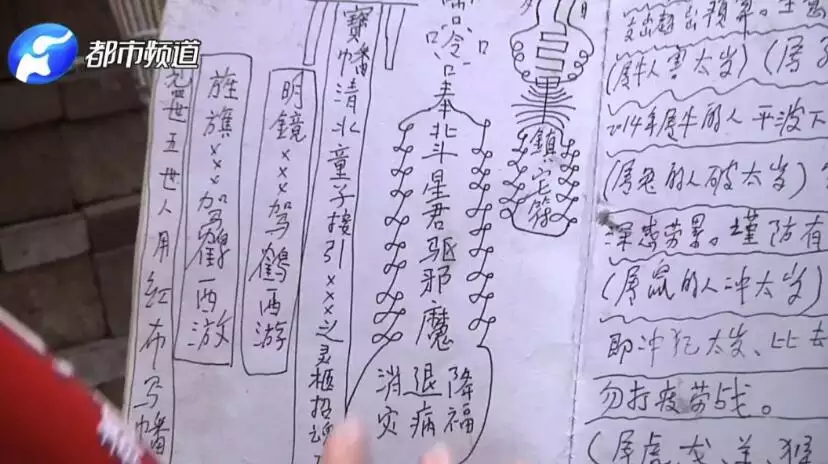 都市频道
世五世人用红布写幡
旌旗×××驾鶴西游
明鏡×××驾鶴西游
寶幡清北童子接引×××之灵柩招魂
奉北斗星君驱邪魔
降福
退病
消灾
鎮宅符
(属牛人害太岁)(属
2014年属牛的人平波下
(属兔的人破太岁)
深感劳累。谨防有
(属鼠的人冲太岁)
即冲犯太岁、比去
勿打疲劳战。
(属虎、龙、羊、猴